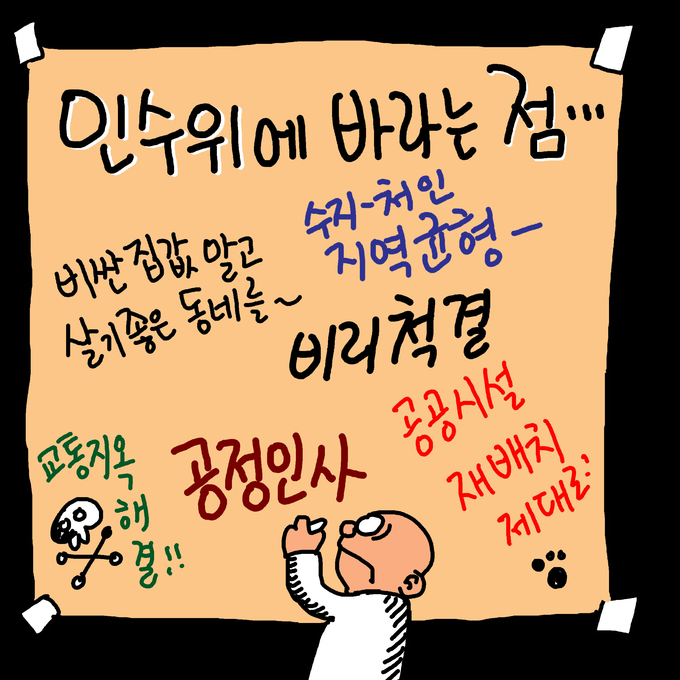 인수위에 바라는 점...
수지-처인
지역균형-
비싼 집값 말고
살기좋은 동네를~
비리척결
공공시설
재배치
제대로!
공정인사
교통지옥
해
결!!